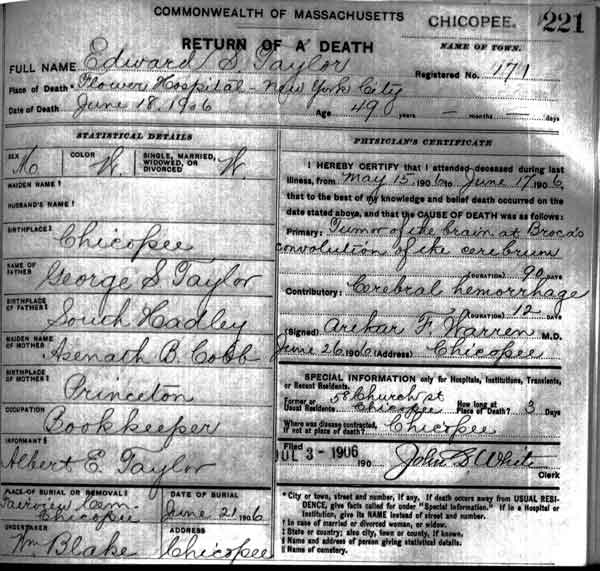 COMMONWEALTH OF MASSACHUSETTS
CHICOPEE.
221
RETURN OF A DEATH
NAME OF TOWN.
FULL NAME Edward S. Taylor
Registered No. 171
Place of Death* Flower Hospital - New York City
Date of Death June 18, 1906 Age 49 years — months — days
STATISTICAL DETAILS
SEX M COLOR W. SINGLE, MARRIED, WIDOWED, OR DIVORCED W
MAIDEN NAME†
HUSBAND'S NAME†
BIRTHPLACE‡
Chicopee
NAME OF FATHER
George S Taylor
BIRTHPLACE OF FATHER‡
South Hadley
MAIDEN NAME OF MOTHER
Asenath B. Cobb
BIRTHPLACE OF MOTHER‡
Princeton
OCCUPATION
Bookkeeper
INFORMANT§
Albert E. Taylor
PLACE OF BURIAL OR REMOVAL‖
Fairview Cem.
Chicopee
DATE OF BURIAL
June 21 1906
UNDERTAKER
Wm Blake
ADDRESS
Chicopee
PHYSICIAN'S CERTIFICATE
I HEREBY CERTIFY that I attended deceased during last
illness, from May 15, 1906 to June 17 1906,
that to the best of my knowledge and belief death occurred on the
date stated above, and that the CAUSE OF DEATH was as follows:
Primary: Tumor of the brain at Broca's
convolution of the cerebrum
(DURATION) 90 DAYS
Contributory: Cerebral hemorrhage
(DURATION) 12 DAYS
(Signed) Arthur F. Warren M.D.
June 26 1906 (Address) Chicopee
SPECIAL INFORMATION only for Hospitals, Institutions, Transients,
or Recent Residents.
Former or Usual Residents 58 Church st Chicopee How long at Place of Death? 3 Days
Where was disease contracted, if not at place of death? Chicopee
Filed
JUL 3 - 1906
190
John D White
Clerk
* City or town, street and number, if any. If death occurs away from USUAL RESI-
DENCE, give facts called for under "Special Information." If in a Hospital or
Institution, give its NAME instead of street and number.
† In case of married or divorced woman, or widow.
‡ State or country; also city, town or county, if known.
§ Name and address of person giving statistical details.
‖ Name of cemetery.